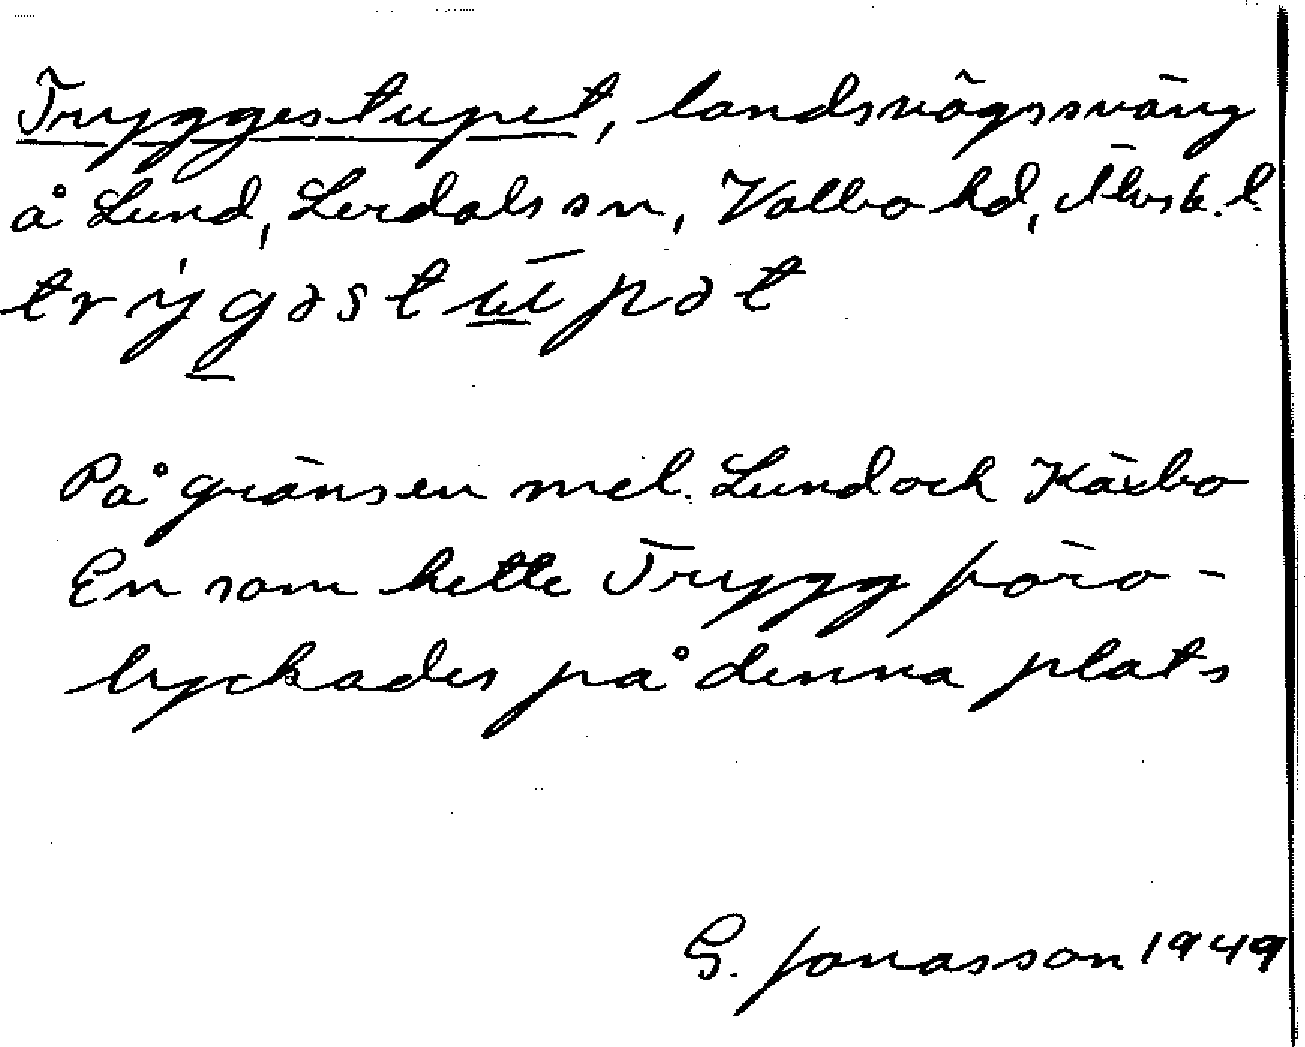 Tryggestupet, landsvägssväng
å Lund, Lerdals sn, Valbo hd, Älvsb. l.
På gränsen mel. Lund och Käxbo
En som hette Trygg föro-
lyckades på denna plats
G. Jonasson 1949